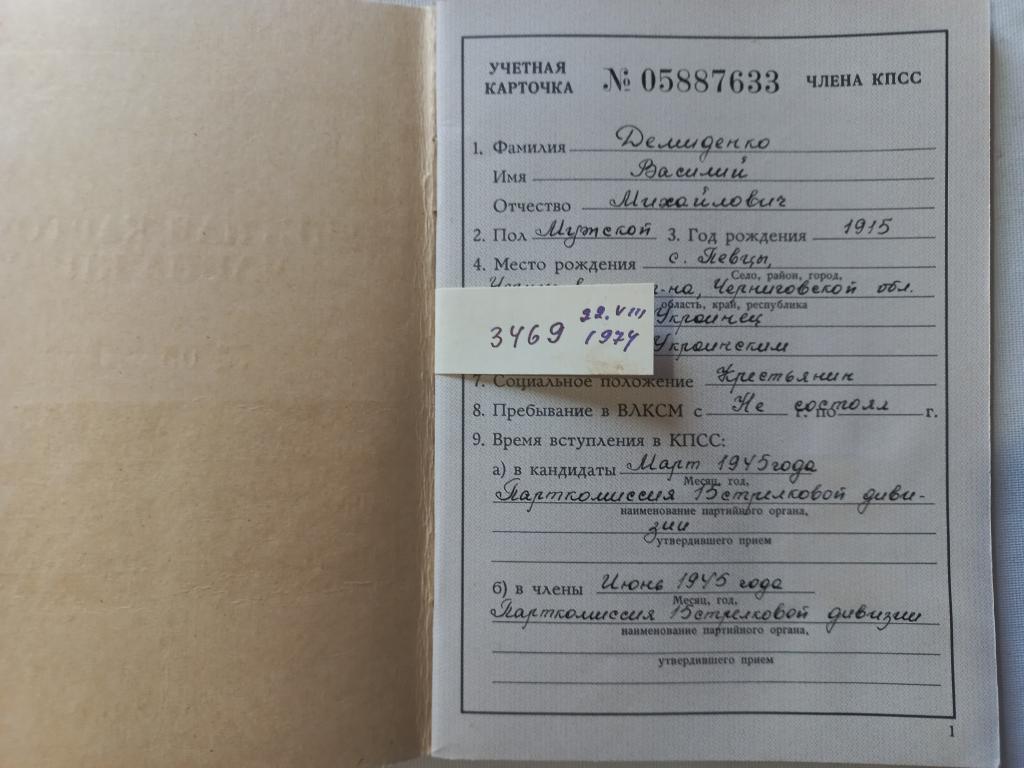 УЧЕТНАЯ КАРТОЧКА № 05887633 ЧЛЕНА КПСС
1. Фамилия Демиденко
Имя Василий
Отчество Михайлович
2. Пол Мужской 3. Год рождения 1915
4. Место рождения с. Певцы,
Село, район, город,
р-на, Черниговской обл.
область, край, республика
Украинец
3469 22.VIII 1974
Украинским
7. Социальное положение Крестьянин
8. Пребывание в ВЛКСМ с Не состоял г.
9. Время вступления в КПСС:
а) в кандидаты Март 1945 года
Месяц, год,
Парткомиссия 15 стрелковой диви-
наименование партийного органа,
зии
утвердившего прием
б) в члены Июнь 1945 года
Месяц, год,
Парткомиссия 15 стрелковой дивизии
наименование партийного органа,
утвердившего прием
1